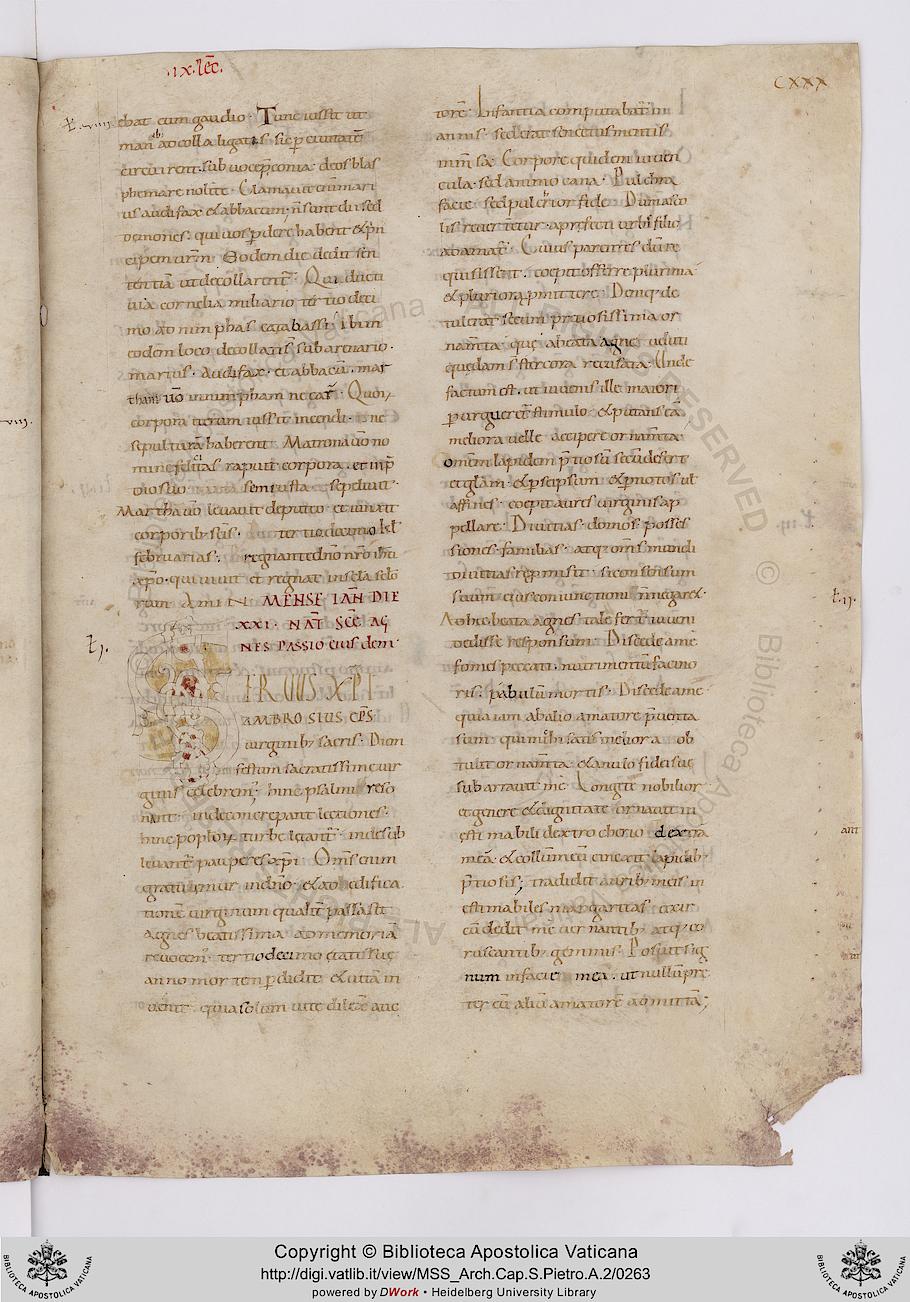 ·ix·lēc̄.
CXXX
ebat cum gaudio· Tunc iussit ut
man ib; ad colla ligatis sic p ciuitatē
circuirent sub uoce p̄conia· deos blas
phemare nolite· Clamauit enim mari
us audifax & abbacum; n̄ sunt dii sed
demones· qui uos p dere habent & prin
cipem urm̄· Eodem die dedit sen
tentiā ut decollarent̄· Qui ducti
uia cornelia miliario tertio deci
mo ad nimphas catabassi· ibi in
eodem loco decollatis sub arenario·
marius· audifax· et abbacū· mar
tham uō in nimpham necar̄· Quor
corpora iterum iussit incendi· ne
sepultura haberent· Matrona uō no
mine felicitas rapuit corpora· et in p̄
dio suo semiusta sepeliuit·
Martha uō leuauit de puteo et iunxit
corporib; seis· tertiodecimo kl
februarias· regnante dn̄o nr̄o ihū
xp̄o· qui uiuit et regnat in secla sclō
rum AMEN MENSE IAN̄ DIE
XXI· NAT̄ SC̄E AG
NES PASSIO eius dem·
t̄ j·
SERUUS XPI
AMBROSIUS EP̄S
uirginib; sacris· Diem
festum sacratissime uir
ginis celebrem; hinc psalmi reso
nant· inde concrepant lectiones·
hinc poploꝝ turbe letant̄· inde sub
leuant̄ pauperes xp̄i Om̄s enim
gratulemur in dn̄o· & ad edifica
tionē uirginum qualit̄ passa sit
agnes beatissima ad memoriā
reuocem̄· tertiodecimo etatis sue
anno mortem p didit & uitā in
uenit· quia solum uite dilex̄ auc
torē· Infantia computabat̄ in
annis sed erat senectus mentis
inm̄sa· Corpore quidem iuuen
cula· sed animo cana· Pulchra
facie sed pulcrior fide· Dum a sco
lis reuertetur· a prefecti urbi filio
adamat̄· Cuius parentes dum re
quisissent· coepit offerre plurima
& pluriora p̄mittere· Deniq; de
tulerat secum pretiosissima or
nam̄ta· que a beata agne ueluti
quedam stercora recusata· Unde
factum est· ut iuuenis ille maiori
p urgueret̄ stimulo & putans eā
meliora uelle accipere ornam̄ta·
omn̄em lapidem p̄tiosū secū defert
et p glam̄ & p seipsum & p notos uł
affines· coepit aures uirginis ap
pellare· Diuitias· domos· posses
siones· familias· atq; om̄s mundi
diuitias rep̄misit· si consensum
suum eius coniunctioni n̄ negaret·
Ad hec beata agnes tale fert̄ iuueni
dedisse responsum· Discede a me
fomes peccati· nutrimentū facino
ris· pabulū mortis· Discede a me
quia iam ab alio amatore p̄uenta
sum· qui mihi satis meliora ob
tulit ornam̄ta· & anulo fidei sue
subarrauit me· Longe nobilior
et genere & dignitate· ornauit in
estimabili dextrocherio dextrā
meā· & collum meū cinxit lapidib;
p̄tiosis; tradidit aurib; meis in
estimabiles margaritas· & cir
cū dedit me uernantib; atq; co
ruscantib; gemmis· Posuit sig
num in facie mea· ut nullū pre
ter eū aliū amatorē admittā;
t̄ ij·
ant̄
Copyright © Biblioteca Apostolica Vaticana
http://digi.vatlib.it/view/MSS_Arch.Cap.S.Pietro.A.2/0263
powered by DWork • Heidelberg University Library
BIBLIOTECA APOSTOLICA VATICANA
BIBLIOTECA APOSTOLICA VATICANA